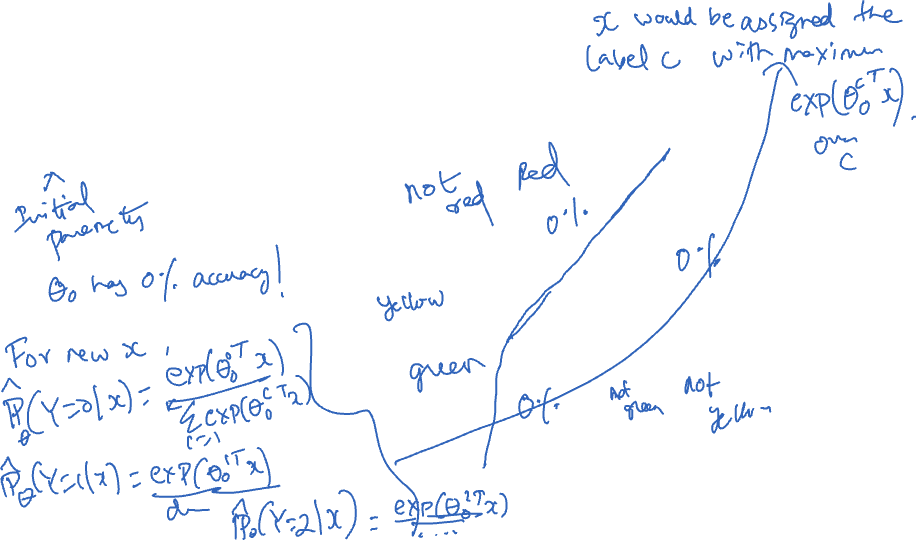 x would be assigned the
label c with maximum
exp(θ₀^{cT} x).
over
c
Initial
parameters
θ₀ has 0% accuracy!
not red
red
0%
0%
yellow
green
0%
not green
not yellow
For new x,
P̂_θ(Y=0|x) = exp(θ₀^{0T} x) / Σ_{c=1} exp(θ₀^{cT} x)
P̂_θ(Y=1|x) = exp(θ₀^{1T} x)
P̂₀(Y=2|x) = exp(θ₀^{2T} x) / ....